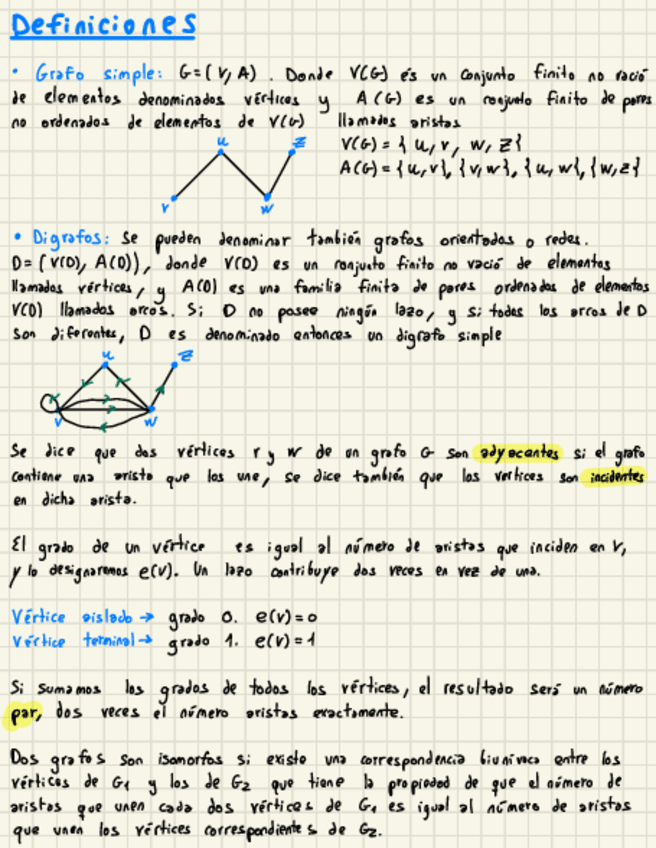 Definiciones
• Grafo simple: G=(V,A). Donde V(G) és un conjunto finito no vació
de elementos denominados vértices y A(G) es un conjunto finito de pares
no ordenados de elementos de V(G) llamados aristas
V(G) = { u, v, w, z}
A(G) = {u,v}, {v,w}, {u,w}, {w,z}
u
z
v
w
• Digrafos: Se pueden denominar también grafos orientados o redes.
D = (V(D), A(D)), donde V(D) es un conjunto finito no vació de elementos
llamados vértices, y A(D) es una familia finita de pares ordenados de elementos
V(D) llamados arcos. Si D no posee ningún lazo, y si todos los arcos de D
son diferentes, D es denominado entonces un digrafo simple
u
z
v
w
Se dice que dos vértices v y w de un grafo G son adyacentes si el grafo
contiene una arista que los une, se dice también que los vertices son incidentes
en dicha arista.
El grado de un vértice es igual al número de aristas que inciden en V,
y lo designaremos e(v). Un lazo contribuye dos veces en vez de una.
Vértice aislado → grado 0. e(v)=0
Vértice terminal → grado 1. e(v)=1
Si sumamos los grados de todos los vértices, el resultado será un número
par, dos veces el número aristas exactamente.
Dos grafos son isomorfos si existe una correspondencia biunívoca entre los
vértices de G1 y los de G2 que tiene la propiedad de que el número de
aristas que unen cada dos vértices de G1 es igual al número de aristas
que unen los vértices correspondientes de G2.